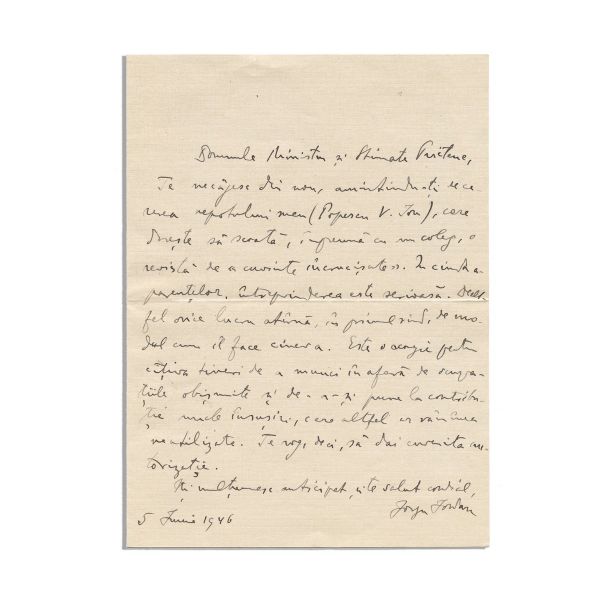 Domnule Ministru și Stimate Prietene,
Te necăjesc din nou, amintindu-ți cere-
rea nepotului meu (Popescu V. Ion), care
dorește să scoată, împreună cu un coleg, o
revistă de « cuvinte încrucișate». In ciuda a-
parențelor, întreprinderea este serioasă. De alt-
fel orice lucru atârnă, în primul rînd, de mo-
dul cum îl face cineva. Este o ocazie pentru
câțiva tineri de a munci în afară de ocupa-
țiile obișnuite și de a-și pune la contribu-
ție unele însușiri, care altfel ar rămânea
neutilizate. Te rog, deci, să dai cuvenita au-
torizație.
Iți mulțumesc anticipat, și te salut cordial,
Iorgu Iordan
5 Iunie 1946